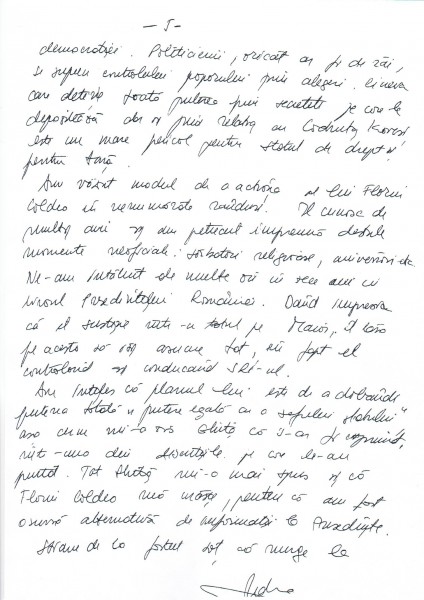 - 5 -
democrației. Politicienii, oricât ar fi de răi,
se supun controlului poporului prin alegeri. Cineva
care deține toată puterea prin secretele pe care le
depozitează dar și prin relația cu Codruța Kovesi
este un mare pericol pentru statul de drept și
pentru țară.
Am văzut modul de a acționa al lui Florin
Coldea în nenumărate rânduri. Îl cunosc de
mulți ani și am petrecut împreună destule
momente neoficiale: sărbători religioase, aniversări etc.
Ne-am întâlnit de multe ori în zece ani cu
Președintelui României. Dând impresia
că el susține totul pe Maior, îl lăsa
pe acesta să își asume tot, în fapt el
controlând și conducând SRI-ul.
Am înțeles că planul lui este de a dobândi
puterea totală, o putere egală cu a șefului statului"
așa cum mi-a zis Ghiță că i-ar fi
într-una din discuțiile pe care le-au
purtat. Tot Ghiță mi-a mai spus și că
Florin Coldea mă urăște, pentru că am fost
o sursă alternativă de informații la Președinte.
de la fostul șef că merge la